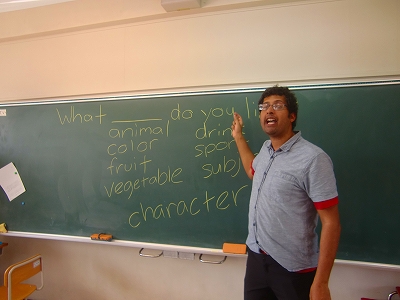 What ____ do you li
animal drin
color spor
fruit subj
vegetable
character